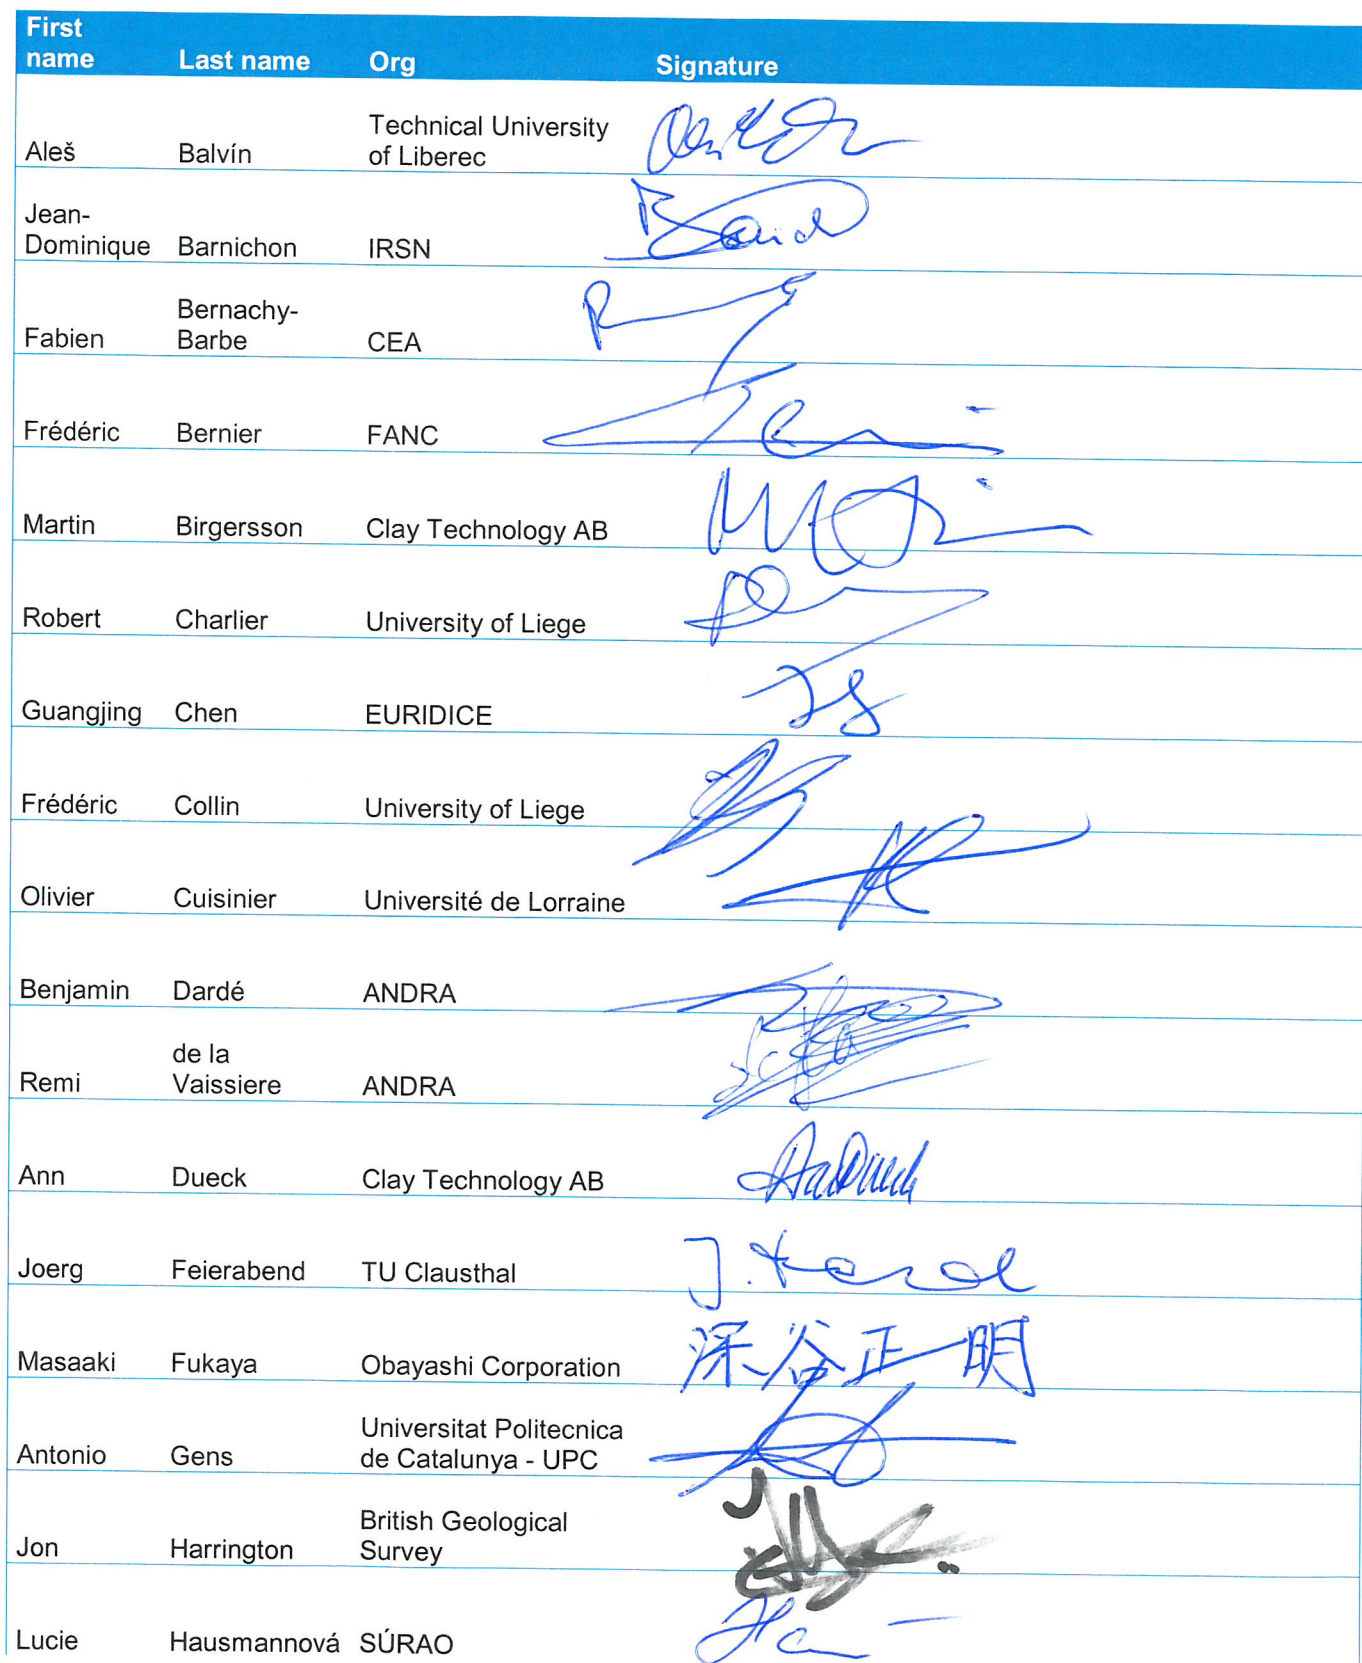 First
name Last name Org Signature
Technical University
Aleš Balvín of Liberec
Jean-
Dominique Barnichon IRSN
Bernachy-
Fabien Barbe CEA
Frédéric Bernier FANC
Martin Birgersson Clay Technology AB
Robert Charlier University of Liege
Guangjing Chen EURIDICE
Frédéric Collin University of Liege
Olivier Cuisinier Université de Lorraine
Benjamin Dardé ANDRA
de la
Remi Vaissiere ANDRA
Ann Dueck Clay Technology AB
Joerg Feierabend TU Clausthal
Masaaki Fukaya Obayashi Corporation 深谷正明
Universitat Politecnica
Antonio Gens de Catalunya - UPC
British Geological
Jon Harrington Survey
Lucie Hausmannová SÚRAO